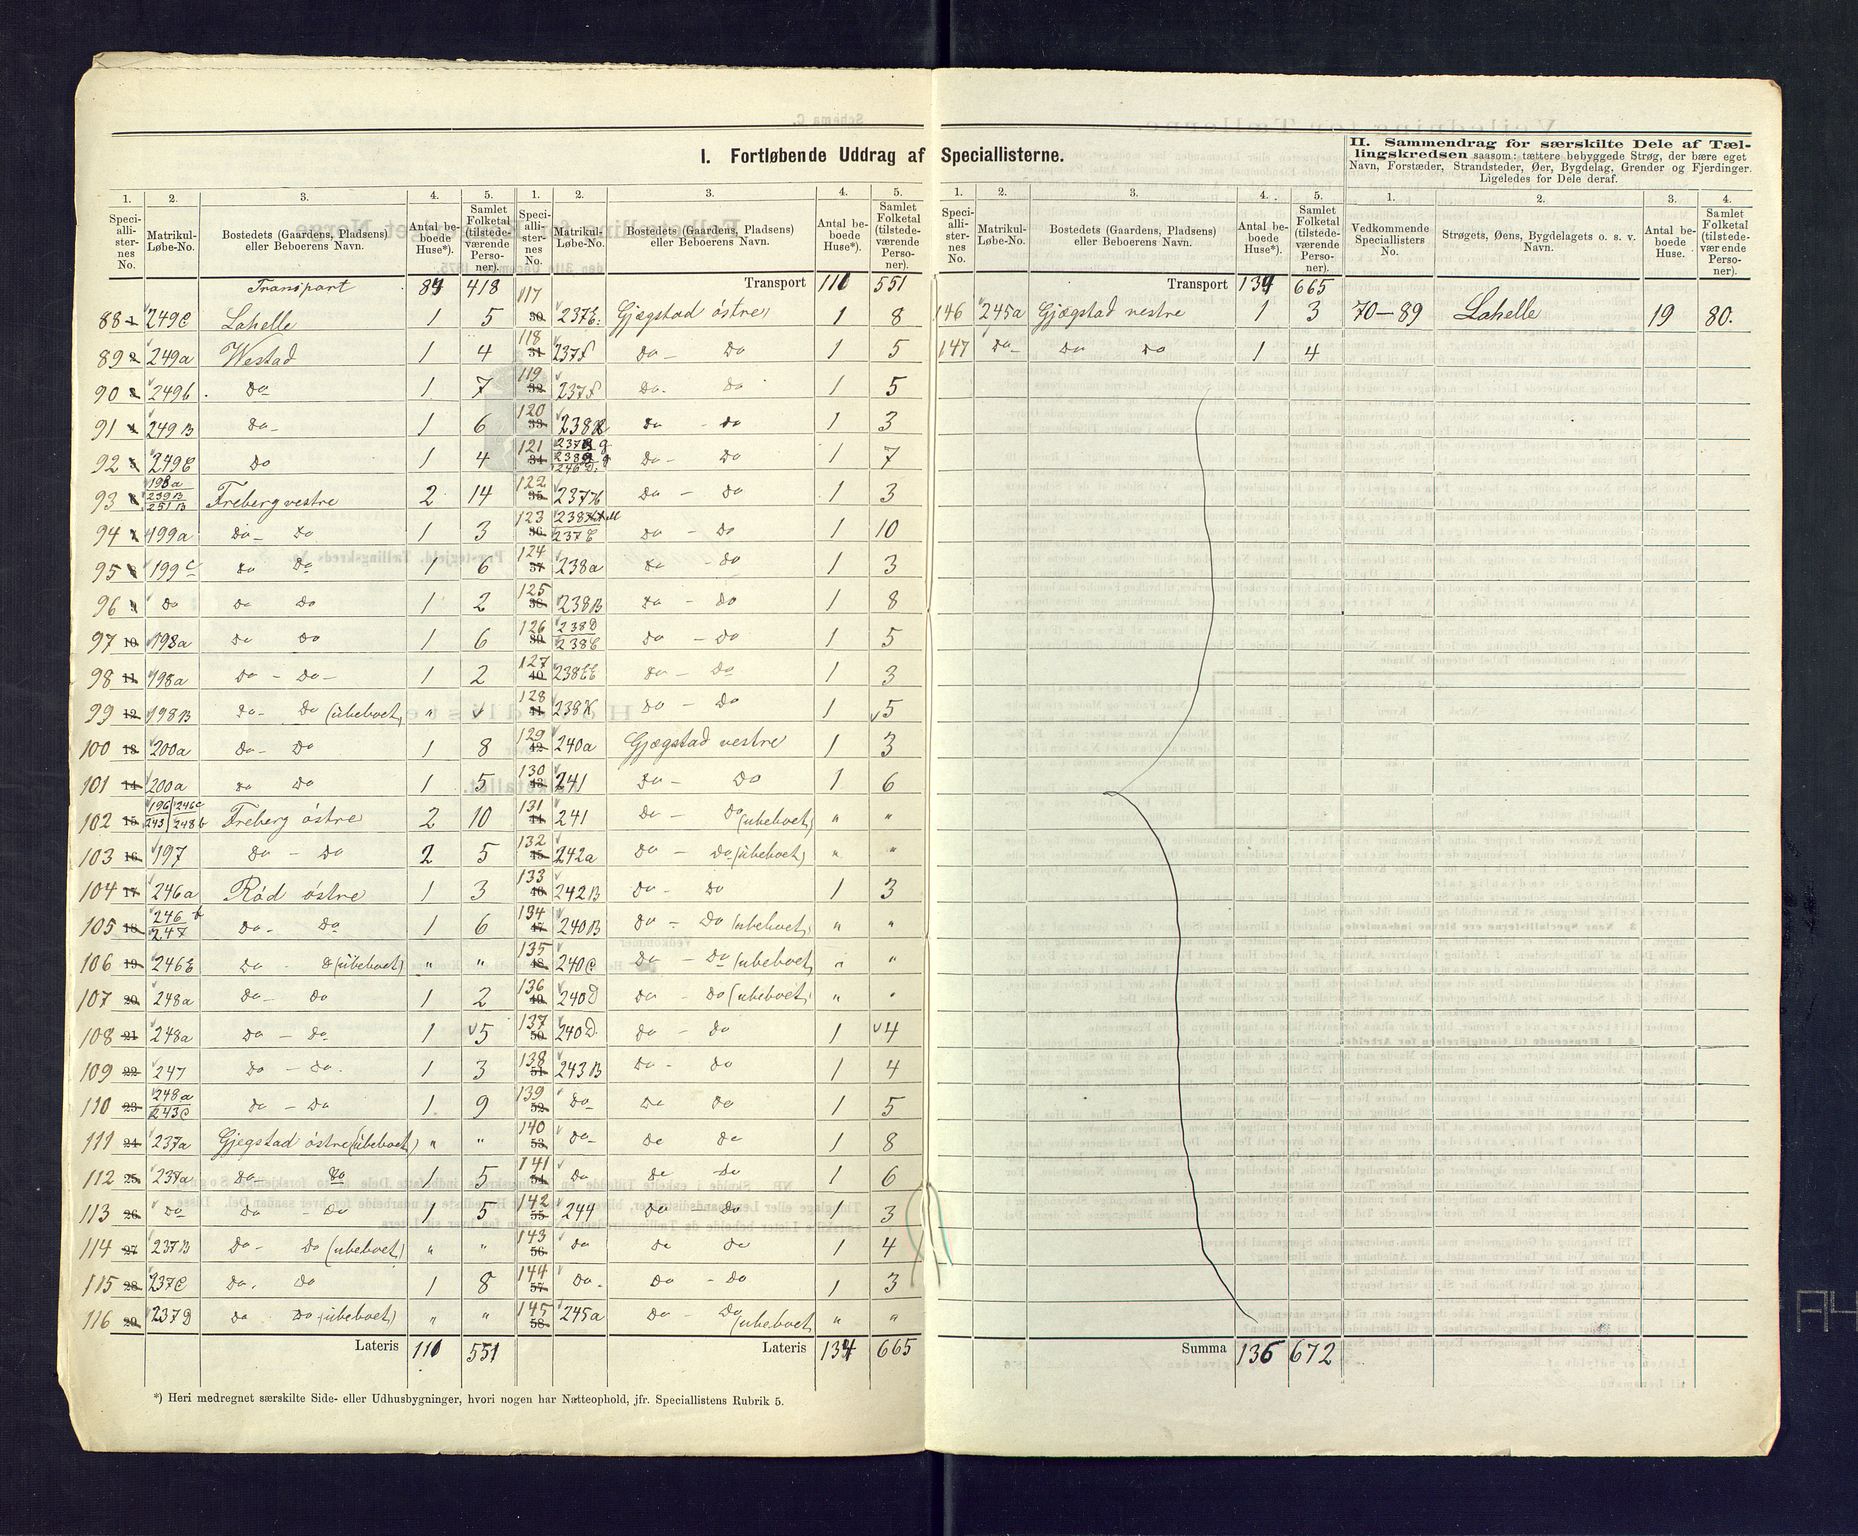 I. Fortløbende Uddrag af Speciallisterne.
II. Sammendrag for særskilte Dele af Tællingskredsen saasom: tættere bebyggede Strøg, der bære eget Navn, Forstæder, Strandsteder, Øer, Bygdelag, Grender og Fjerdinger. Ligeledes for Dele deraf.
1. 2. 3. 4. 5. 1. 2. 3. 4. 5. 1. 2. 3. 4. 5. 1. 2. 3. 4.
Speciallisternes No. Matrikul-Løbe-No. Bostedets (Gaardens, Pladsens) eller Beboerens Navn. Antal beboede Huse*). Samlet Folketal (tilstedeværende Personer).
Speciallisternes No. Matrikul-Løbe-No. Bostedets (Gaardens, Pladsens) eller Beboerens Navn. Antal beboede Huse*). Samlet Folketal (tilstedeværende Personer).
Speciallisternes No. Matrikul-Løbe-No. Bostedets (Gaardens, Pladsens) eller Beboerens Navn. Antal beboede Huse*). Samlet Folketal (tilstedeværende Personer).
Vedkommende Speciallisters No. Strøgets, Øens, Bygdelagets o. s. v. Navn. Antal beboede Huse. Samlet Folketal (tilstedeværende Personer).
Transport 418
88 1 249C Lahelle 1 5
89 2 249a Westad 1 4
90 3 249b Do 1 7
91 4 249B Do- 1 6
92 5 249E Do 1 4
93 198a 239B 251B Freberg vestre 2 14
94 199a Do- Do 1 3
95 199c Do Do 1 6
96 Do Do Do 1 2
97 10 198a Do Do 1 6
98 11 198a Do - Do- 1 2
99 12 198B Do- Do (übeboet) "
100 13 200a Do- Do 1 8
101 14 200a Do Do 1 5
102 15 196 246c 243 248b Freberg østre 2 10
103 16 197 Do - Do 2 5
104 17 246a Rød østre 1 3
105 18 246 247 Do- Do 1 6
106 19 246E Do - (übeboet) " "
107 20 248a Do- Do 1 2
108 21 248a Do - Do 1 5
109 22 247 Do - Do. 1 3
110 23 248a 243C Do - Do 1 9
111 24 237a Gjegstad østre (übeboet) " "
112 25 237a Do- Do 1 5
113 26 Do Do Do 1 5
114 27 237B Do- Do (übeboet) " "
115 28 237C Do. Do 1 8
116 29 237D Do Do (übeboet) " "
Lateris 110 551
Transport 110 551
117 30 237E Gjægstad østre 1 8
118 31 237F Do- Do 1 5
119 32 237F Do. Do 1 5
120 33 238 Do - Do 1 3
121 34 246D. Do- Do 1 7
122 35 237H Do - Do 1 3
123 36 237E Do - Do 1 10
124 37 238a Do - Do 1 3
125 38 238B Do - Do 1 8
126 39 238D 238E Do - Do 1 5
127 40 238EE Do - Do 1 3
128 41 238K Do - Do 1 5
129 42 240a Gjægstad vestre 1 3
130 43 241 Do- Do 1 6
131 44 241 Do - Do (übeboet) " "
132 45 242a Do - Do (übeboet) " "
133 46 242B Do- Do 1 3
134 47 240B Do - Do (übeboet) " "
135 48 240C Do - Do (übeboet) " "
136 49 240D Do - Do (übeboet) " "
137 50 240D. Do - Do 1 4
138 51 243B Do- Do 1 4
139 52 Do Do Do 1 5
140 53 Do- Do Do 1 8
141 54 Do Do Do 1 6
142 55 244 Do Do 1 3
143 56 Do Do Do 1 4
144 57 Do. Do - Do 1 3
145 58 245a Do- Do (übeboet) " "
Lateris 134 665
Transport 134 665
146 245a Gjægstad vestre 1 3
147 Do- Do Do 1 4
Summa 136 672
70-89 Lahelle 19 80.
*) Heri medregnet særskilte Side- eller Udhusbygninger, hvori nogen har Natteophold, jfr. Speciallistens Rubrik 5.